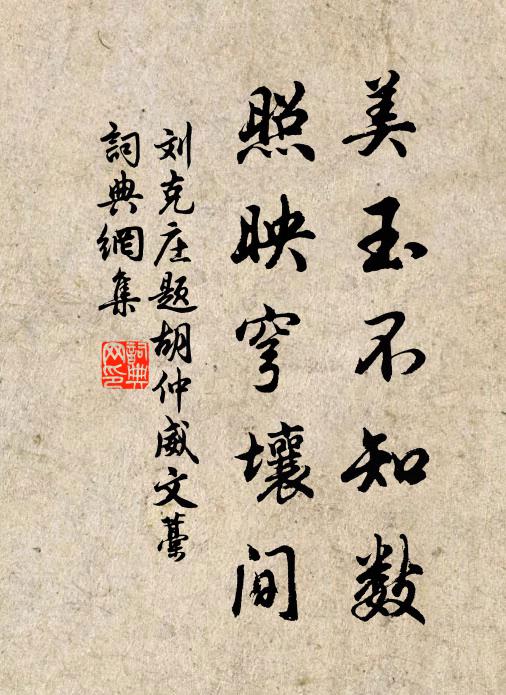 美玉不知数
照映穹壤间
刘克庄题胡仲威文藁
詞典網集
詞典网印